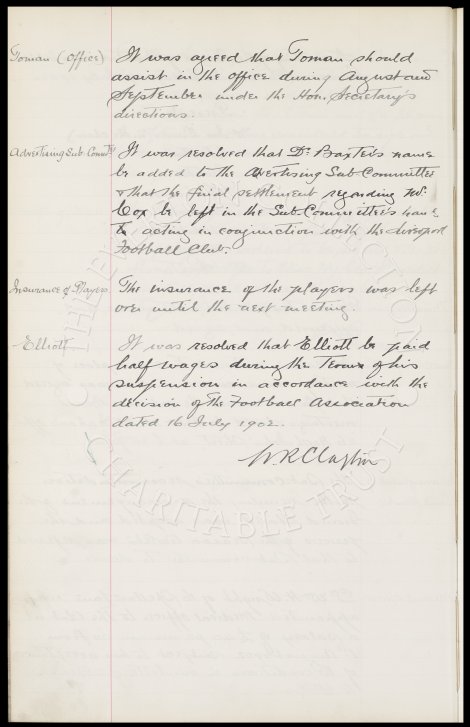 Toman (Office)
It was agreed that Toman should
assist in the office during August and
September under the Hon. Secretary's
directions.
Advertising Sub Committee
It was resolved that Dr. Baxter's name
be added to the Advertising Sub Committee
& that the final settlement regarding Mr.
Cox be left in the Sub-Committee's hands
acting in conjunction with the Liverpool
Football Club.
Insurance of Players
The insurance of the players was left
over until the next meeting.
Elliott
It was resolved that Elliott be paid
half wages during the Term of his
suspension in accordance with the
decision of the Football Association
dated 16 July 1902.
W. R. Clayton
CHARITABLE TRUST